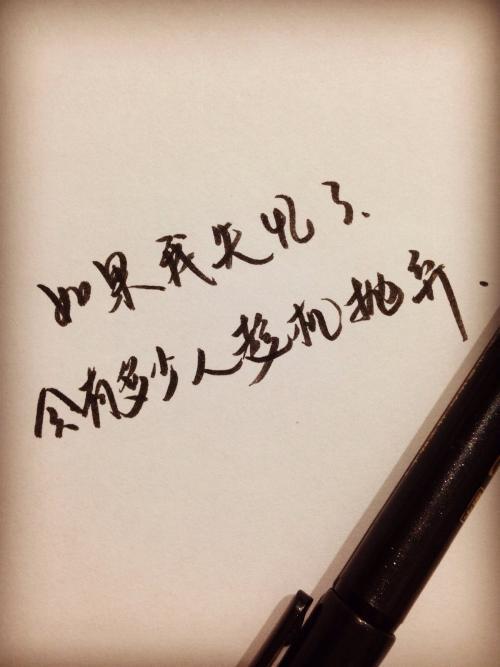 如果我失忆了.
会有多少人趁机抛弃.